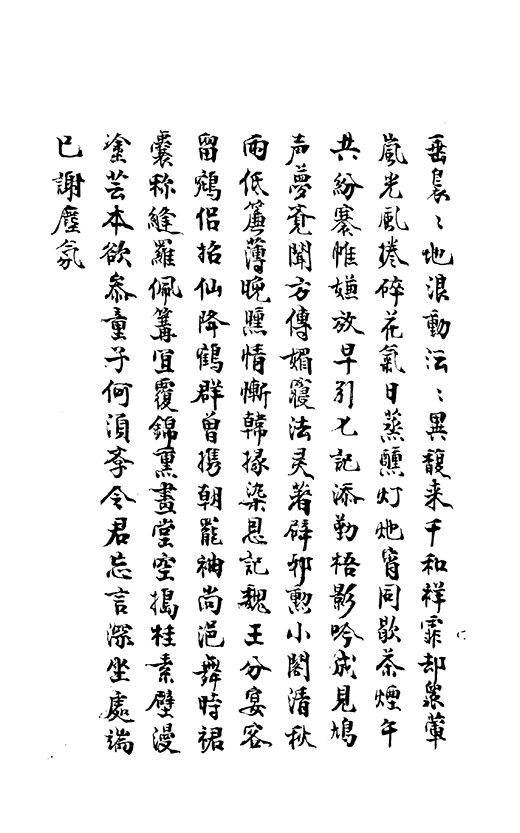 垂裊〻地浪動沄〻異馥来千和祥霏却衆葷
嵐光風捲碎花氣日蒸醺灯灺宵同歇茶煙午
共紛褰帷嫌放早引匕記添勤梧影吟成見鳩
声夢覺聞方傳媚寢法灵著辟邪勲小閣清秋
雨低簾薄晚曛情慚韓掾染恩記魏王分宴客
留鵷侣招仙降鶴群曾携朝罷袖尚浥舞時裙
囊称縫羅佩篝宜覆錦熏畫堂空搗桂素壁漫
塗芸本欲參童子何須斈令君忘言深坐處端
已謝塵氛